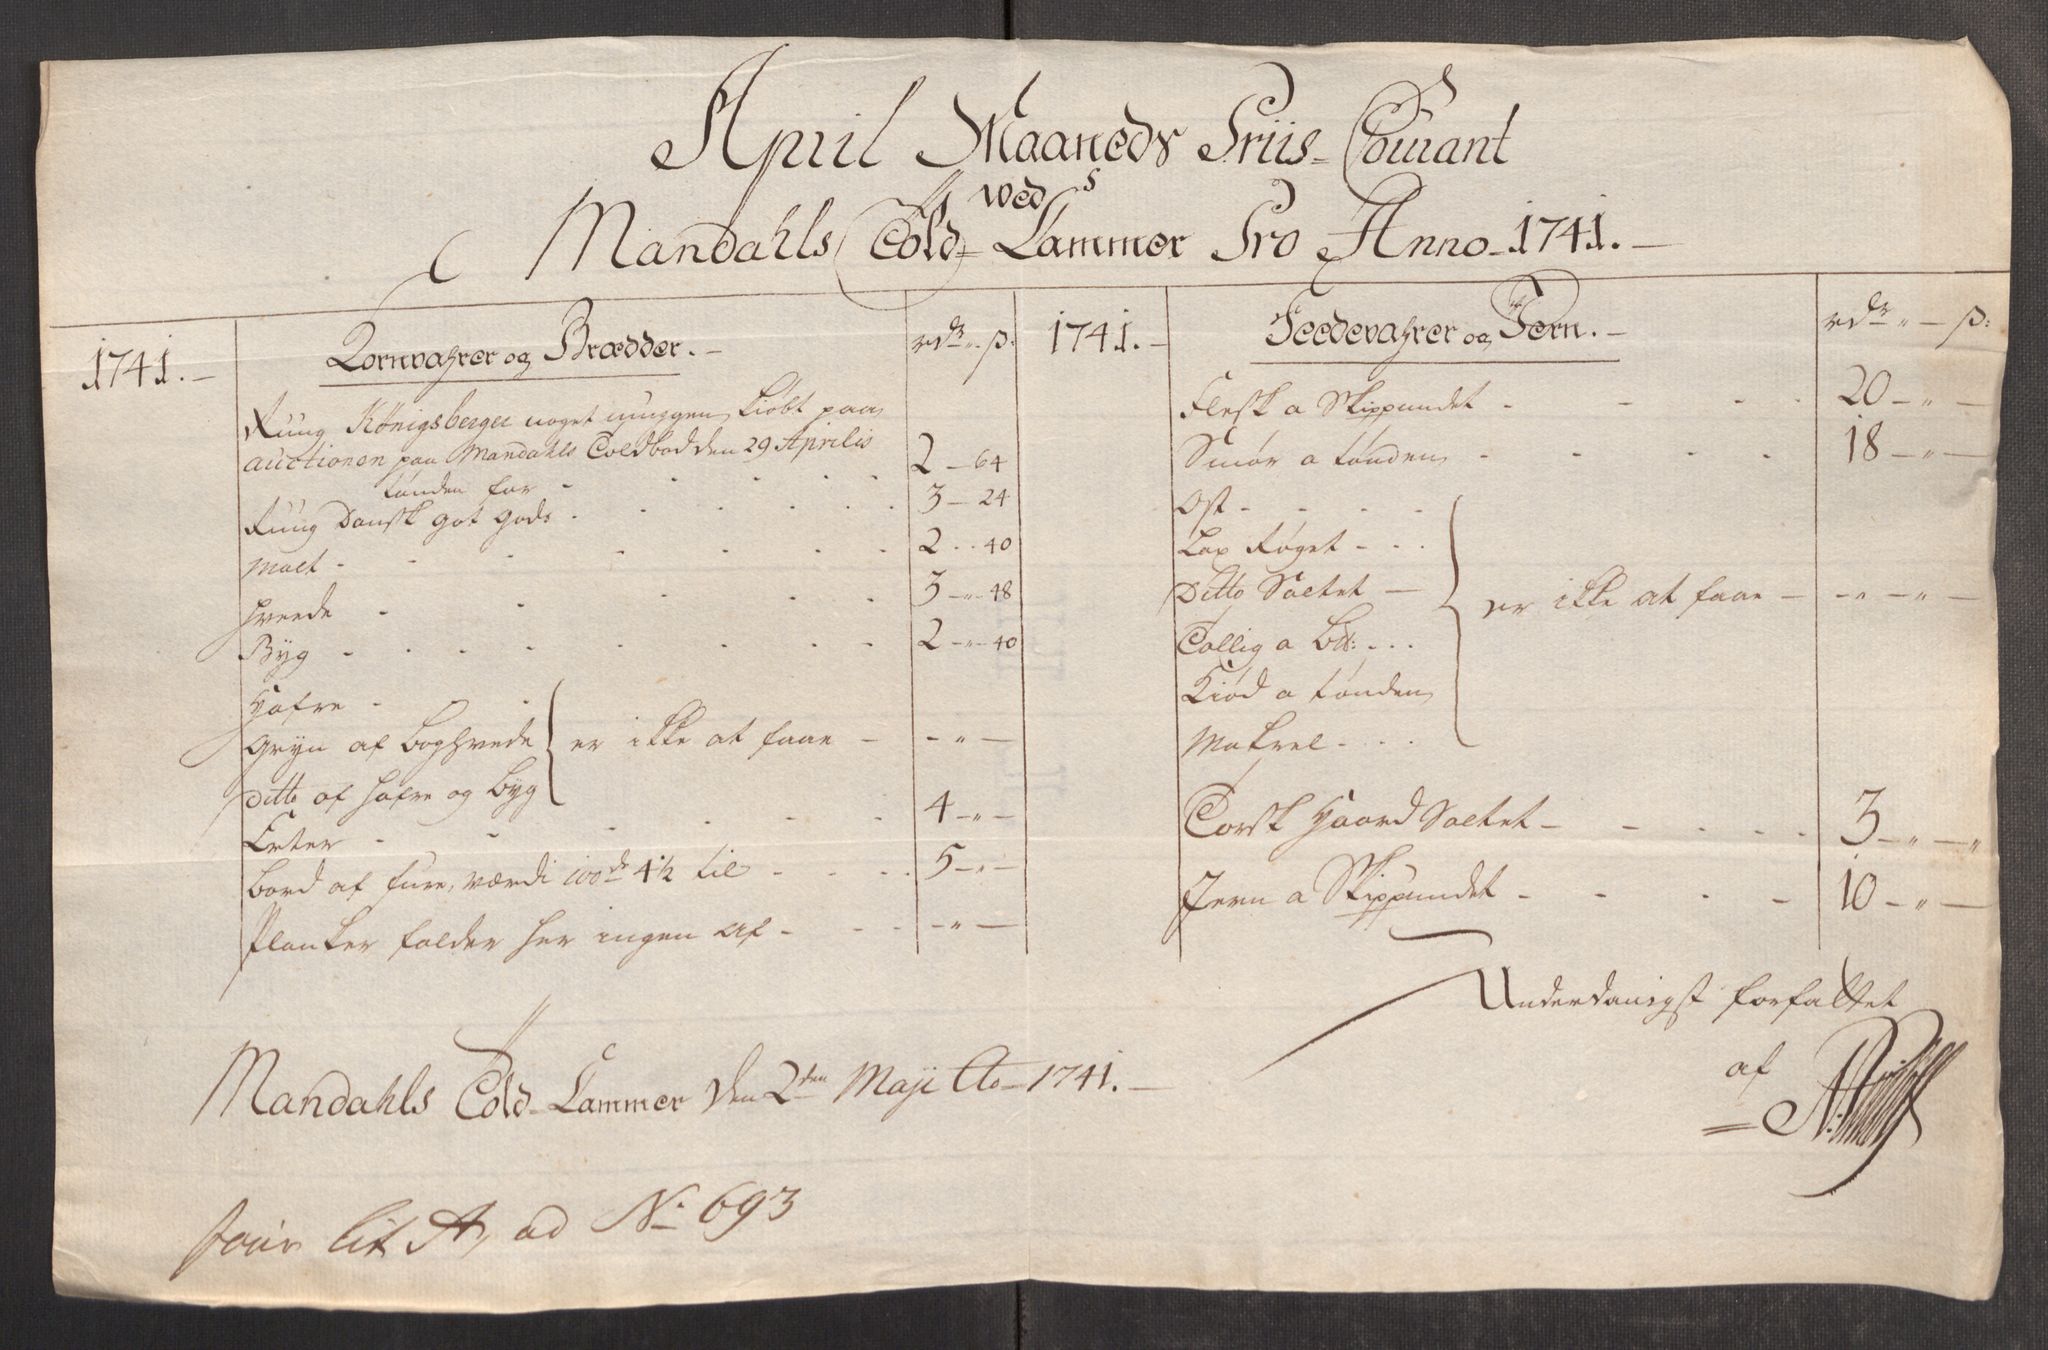 April Maaneds Priis-Courant
ved
Mandahls Told-Kammer Pro Anno 1741.
1741.
Kornvahrer og Brædder.
rdr. ß:
Rug Königsberger noget muggen kiøbt paa
auctionen paa Mandahls Toldbod den 29 Aprilis
tønden for - 2 - 64
Rug Dansk got gods - 3 - 24
Malt - 2 - 40
Hvede - 3 - " - 48
Byg - 2 - " - 40
Hafre -
Gryn af boghvede } er ikke at faae - - " -
Ditto af hafre og byg
Erter - 4 - " -
Bord af fure, værdi 100de 4 1/2 til - 5 - " -
Planker falder her ingen af - - " -
1741.
Feedevahrer og Jern.
rdr. " - ß:
Flesk a Skippundet - 20 - " -
Smør a tønden - 18 - " -
Ost -
Lax Røget -
Ditto Saltet -
Tallig a Lb: - } er ikke at faae - - " - " -
Kiød a tønden
Makrel -
Torsk Haard Saltet - 3 - " - "
Jern a Skippundet - 10 - " -
Underdanigst forfattet
af
Mandahls Told-Kammer den 2den Maji Ao 1741.
lit A, ad No 693